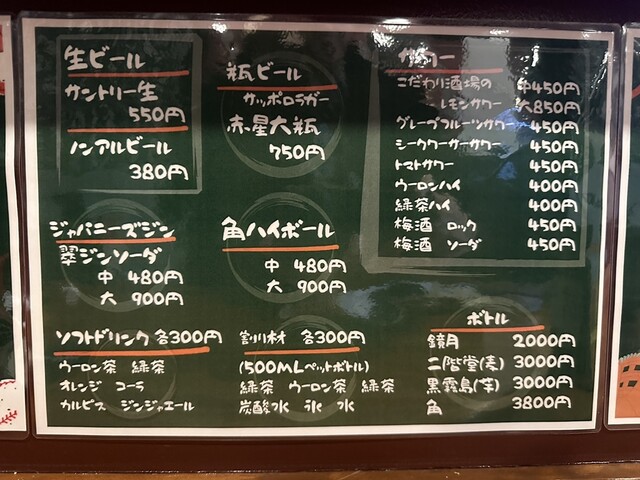 生ビール
サントリー生
550円
ノンアルビール
380円
瓶ビール
サッポロラガー
赤星大瓶
750円
サワー
こだわり酒場の 中450円
レモンサワー 大850円
グレープフルーツサワー 450円
シークワーサーサワー 450円
トマトサワー 450円
ウーロンハイ 400円
緑茶ハイ 400円
梅酒 ロック 450円
梅酒 ソーダ 450円
ジャパニーズジン
翠ジンソーダ
中 480円
大 900円
角ハイボール
中 480円
大 900円
ソフトドリンク 各300円
ウーロン茶 緑茶
オレンジ コーラ
カルピス ジンジャエール
割り材 各300円
(500MLペットボトル)
緑茶 ウーロン茶 緑茶
炭酸水 氷 水
ボトル
鏡月 2000円
二階堂(麦) 3000円
黒霧島(芋) 3000円
角 3800円